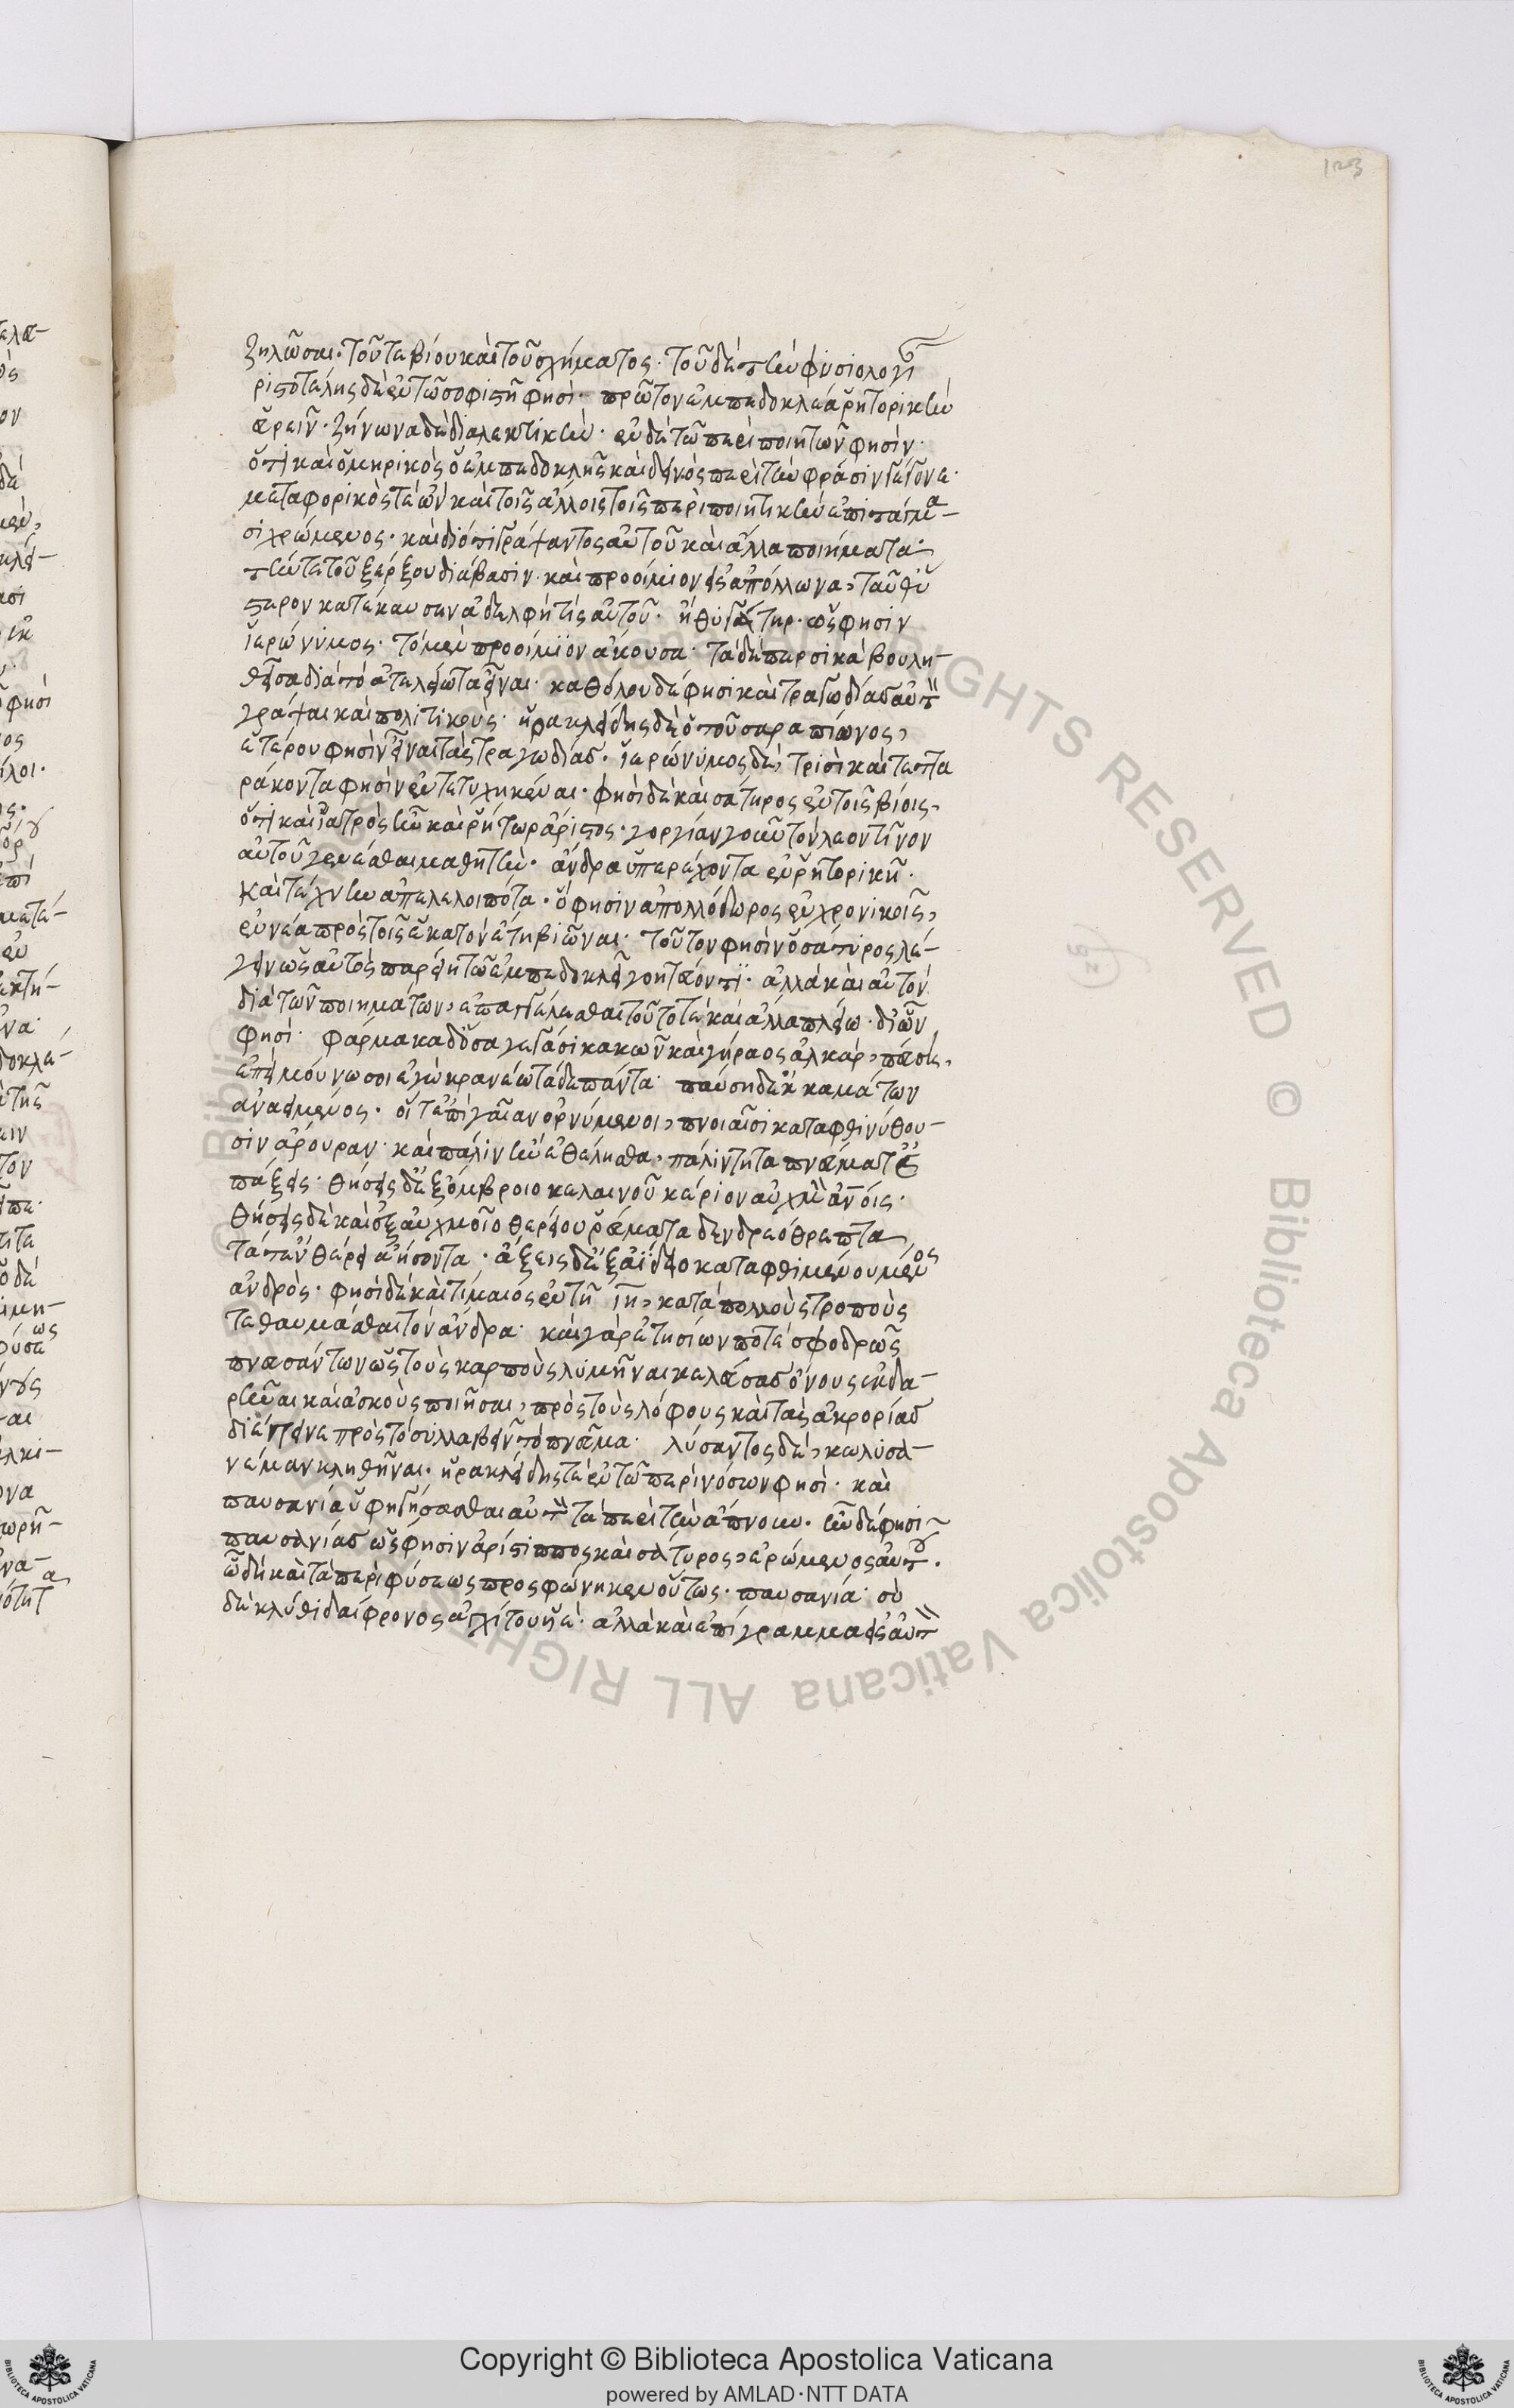 123
ζηλῶσαι· τοῦ τε βίου καὶ τοῦ σχήματος· τοῦ δὲ τὴν φυσιολογί
ριστοτέλης δὲ ἐν τῷ σοφιστῇ φησὶ· πρῶτον ἐμπεδοκλέα ῥητορικὴν
εὑρεῖν· ζήνωνα δὲ διαλεκτικὴν· ἐν δὲ τῷ περὶ ποιητῶν φησὶν·
ὅτι καὶ ὁμηρικὸς ὁ ἐμπεδοκλῆς καὶ δεινὸς περὶ τὴν φράσιν γέγονε·
μεταφορικὸς τὲ ὢν καὶ τοῖς ἄλλοις τοῖς περὶ ποιητικὴν ἐπιτεύγμα-
σι χρώμενος· καὶ διότι γράψαντος αὐτοῦ καὶ ἄλλα ποιήματα·
τήν τε τοῦ ξέρξου διάβασιν· καὶ προοίμιον εἰς ἀπόλλωνα, ταῦθ' ὕ
στερον κατέκαυσεν ἀδελφή τις αὐτοῦ· ἢ θυγάτηρ· ὥς φησιν
ἱερώνυμος· τὸ μὲν προοίμιον ἄκουσα· τὰ δὲ περσικὰ βουλη-
θεῖσα διὰ τὸ ἀτελείωτα εἶναι· καθόλου δέ φησι καὶ τραγωδίας αὐτ
γράψαι καὶ πολιτικοὺς· ἡρακλείδης δὲ ὁ τοῦ σαραπίωνος,
ἑτέρου φησὶν εἶναι τὰς τραγωδίας· ἱερώνυμος δὲ, τρισὶ καὶ τεττα
ράκοντα φησὶν ἐντετυχηκέναι· φησὶ δὲ καὶ σάτυρος ἐν τοῖς βίοις,
ὅτι καὶ ἰατρὸς ἦν καὶ ῥήτωρ ἄριστος· γοργίαν γοῦν τὸν λεοντῖνον
αὐτοῦ γενέσθαι μαθητὴν· ἄνδρα ὑπερέχοντα ἐν ῥητορικῇ·
καὶ τέχνην ἀπολελοιπότα· ὅ φησιν ἀπολλόδωρος ἐν χρονικοῖς,
ἐννέα πρὸς τοῖς ἑκατὸν ἔτη βιῶναι· τοῦτον φησὶν ὁ σάτυρος λέ-
γειν ὡς αὐτὸς παρείη τῷ ἐμπεδοκλεῖ γοητεύοντι· ἀλλὰ καὶ αὐτὸν
διὰ τῶν ποιημάτων, ἐπαγγέλλεσθαι τοῦτό τε καὶ ἄλλα πλείω· δι' ὧν
φησὶ· φάρμακα δ' ὅσσα γεγάσι κακῶν καὶ γήραος ἄλκαρ, πεύσῃ,
ἐπεὶ μούνω σοι ἐγὼ κρανέω τάδε πάντα· παύσῃ δ' ἀκαμάτων
ἀνεμένος· οἵ τ' ἐπὶ γαῖαν ὀρνύμενοι, πνοιαῖσι καταφθινύθου-
σιν ἄρουραν· καὶ πάλιν ἢν ἐθέλησθα, παλίντητα πνεύματ' ἐ
πάξεις· θήσεις δ' ἐξ ὄμβροιο κελαινοῦ καίριον αὐχμ
θήσεις δὲ καὶ ἐξ αὐχμοῖο θερείου ῥεύματα δενδρεόθρεπτα
τά τ' ἐν θέρει ἀήσοντα· ἄξεις δ' ἐξ ἀΐδαο καταφθιμένου μένος
ἀνδρὸς· φησὶ δὲ καὶ τίμαιος ἐν τῇ ιη, κατὰ πολλοὺς τρόπους
τεθαυμάσθαι τὸν ἄνδρα· καὶ γὰρ ἐτησίων ποτὲ σφοδρῶς
πνευσάντων ὡς τοὺς καρποὺς λυμῆναι κελεύσας ὄνους ἐκδα-
ρῆναι καὶ ἀσκοὺς ποιῆσαι, πρὸς τοὺς λόφους καὶ τὰς ἀκρορίας
διέτεινε πρὸς τὸ συλλαβεῖν τὸ πνεῦμα· λύσαντος δὲ, κωλυσα-
νέμαν κληθῆναι· ἡρακλείδης τὲ ἐν τῷ περὶ νόσων φησὶ· καὶ
παυσανία ὑφηγήσασθαι αὐτ τὰ περὶ τὴν ἄπνουν· ἦν δέ φησι
παυσανίας ὥς φησιν ἀρίστιππος καὶ σάτυρος, ἐρώμενος αὐτοῦ.
ᾧ δὴ καὶ τὰ περὶ φύσεως προσφώνηκεν οὕτως· παυσανία· σὺ
δὲ κλῦθι δαΐφρονος ἀγχίτου υἱέ· ἀλλὰ καὶ ἐπίγραμμα εἰς αὐτ